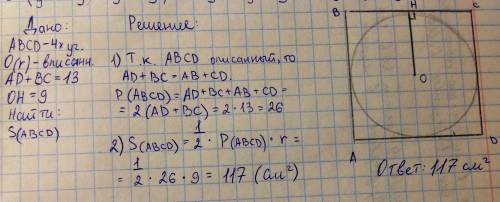 Дано:
ABCD-4х уг.
O(r)-вписанн.
AD+BC=13
OH=9
Найти:
S(ABCD)
Решение:
1) Т.к. ABCD описанный, то
AD+BC=AB+CD.
P(ABCD)=AD+BC+AB+CD=
=2(AD+BC)=2·13=26
2) S(ABCD)=1/2·P(ABCD)·r=
=1/2·26·9=117(см²)
B H C
O
A D
Ответ: 117 см²